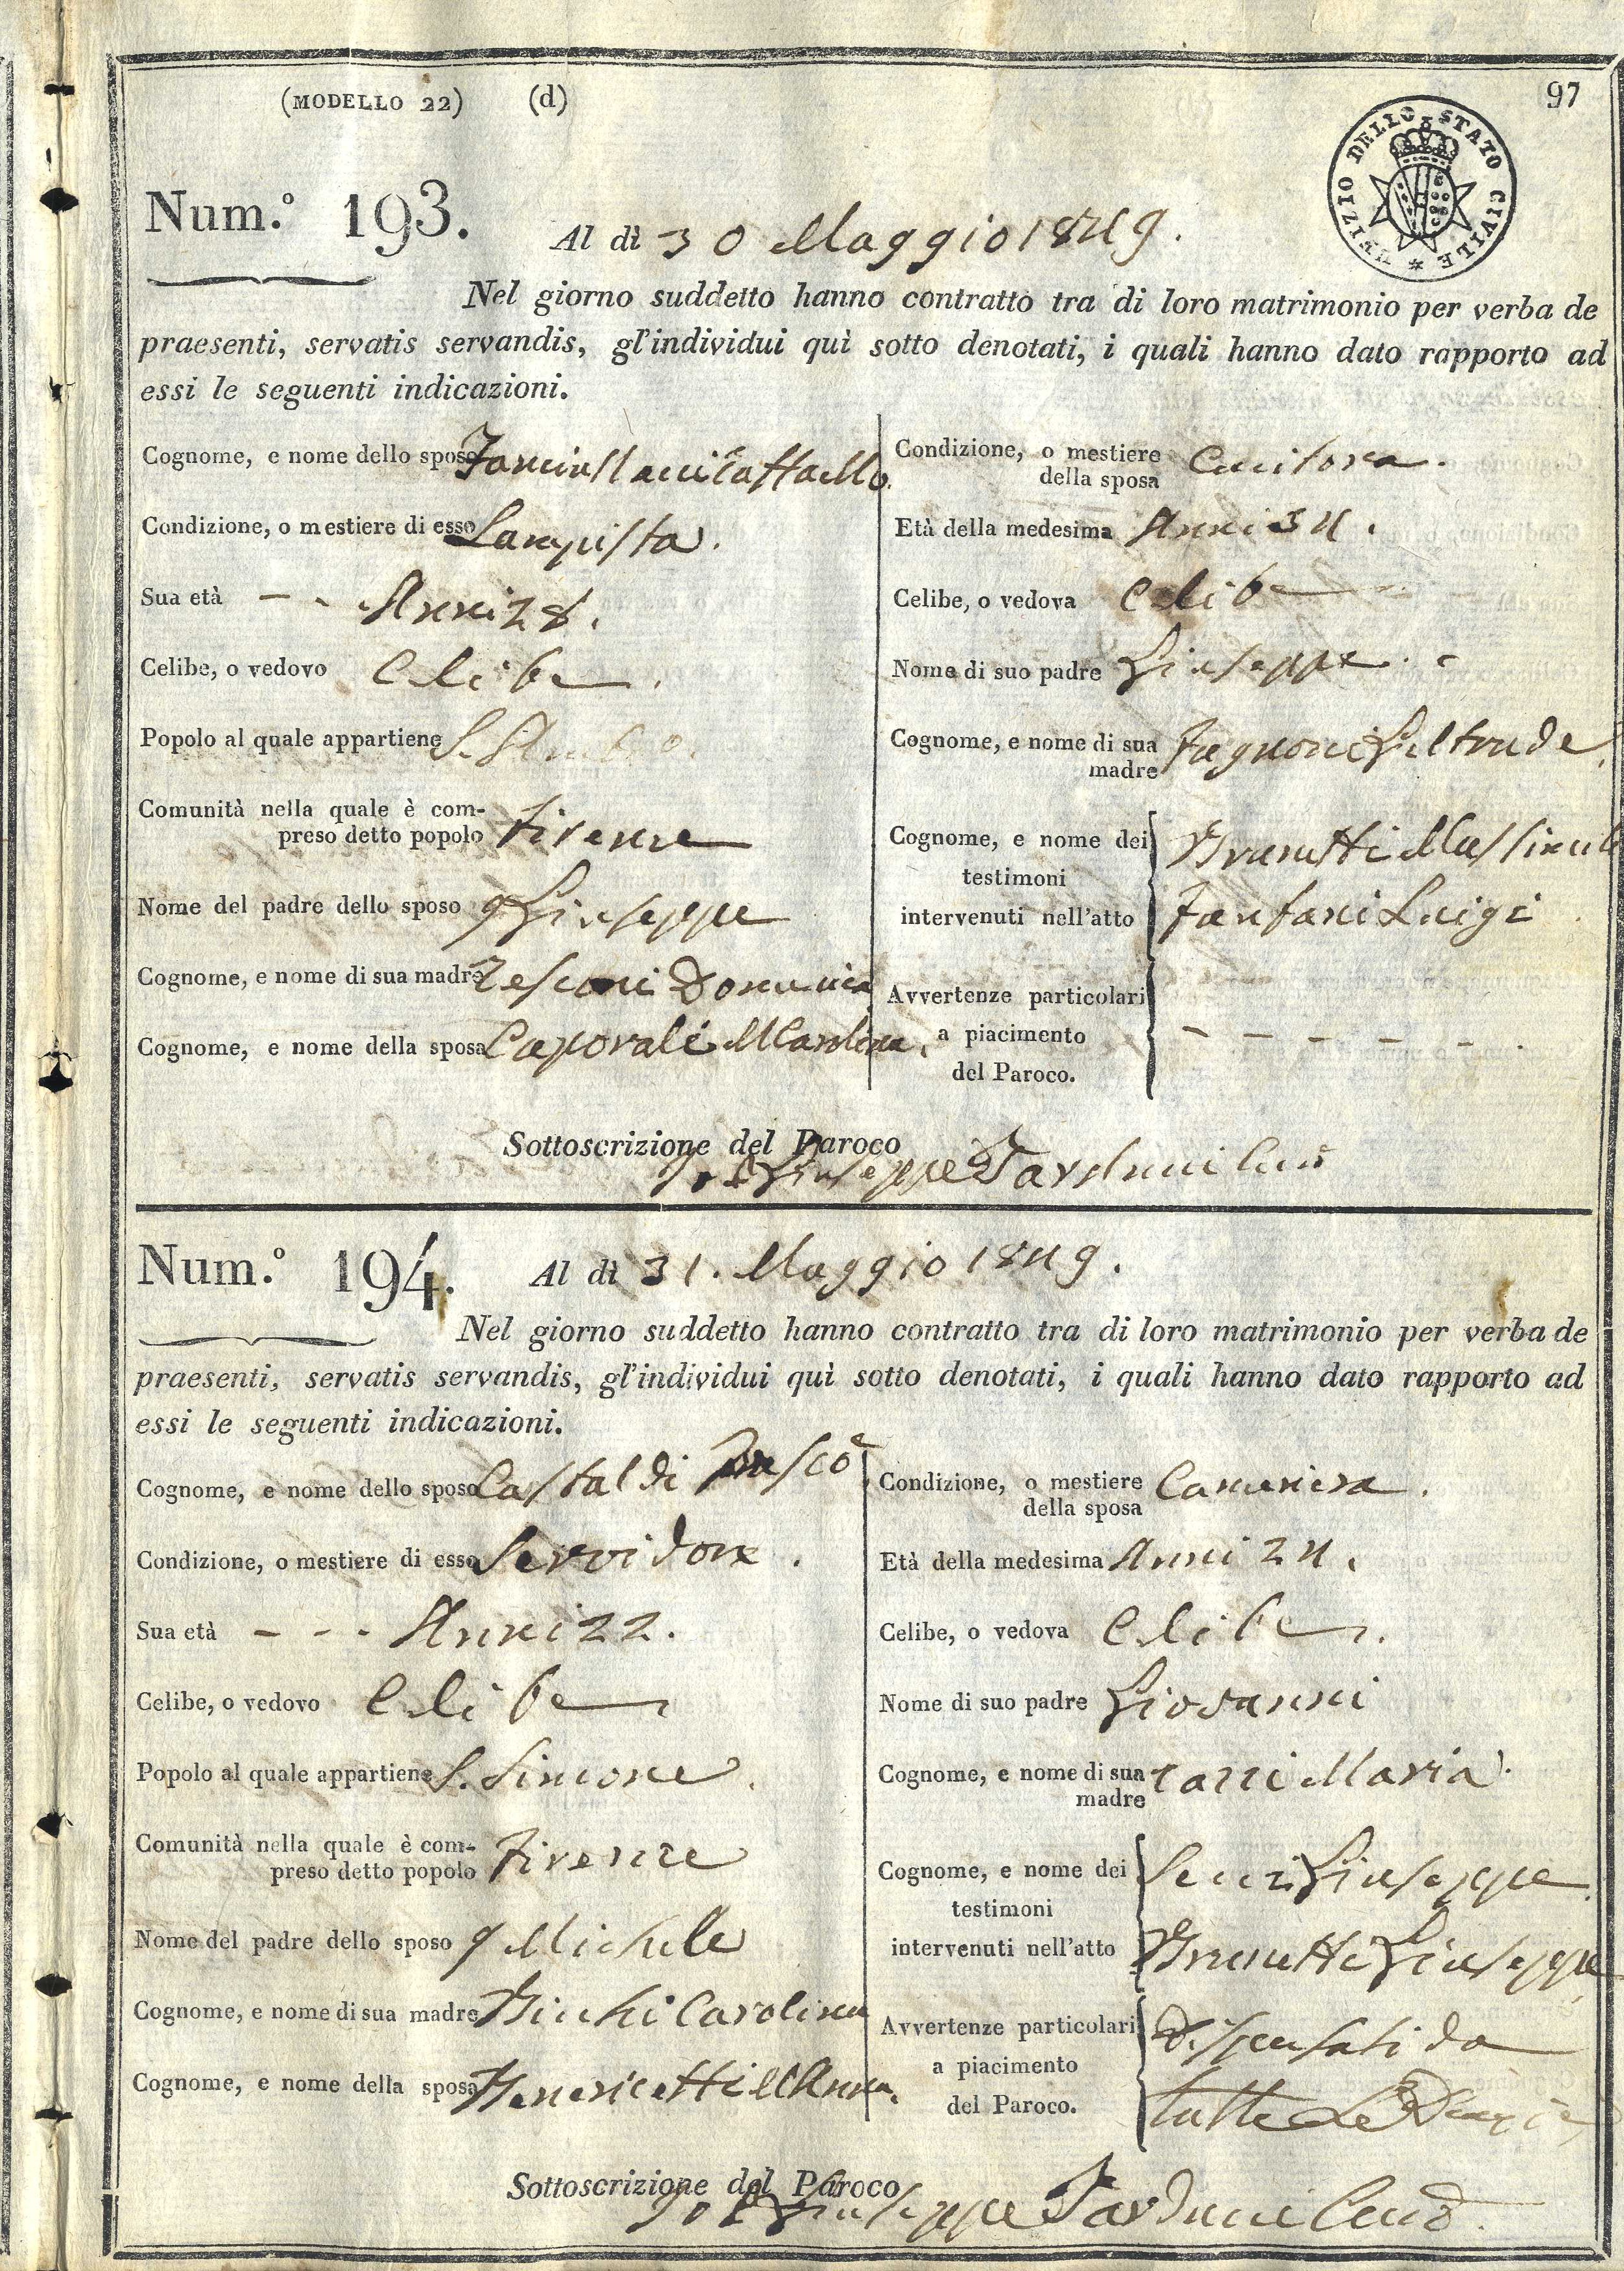 (MODELLO 22) (d) 97
UFIZIO DELLO STATO CIVILE
Num.º 193. Al dì 30 Maggio 1849.
Nel giorno suddetto hanno contratto tra di loro matrimonio per verba de
praesenti, servatis servandis, gl'individui quì sotto denotati, i quali hanno dato rapporto ad
essi le seguenti indicazioni.
Cognome, e nome dello sposo
Condizione, o mestiere di esso Lampista.
Sua età Anni 28.
Celibe, o vedovo Celibe.
Popolo al quale appartiene S.
Comunità nella quale è com-
preso detto popolo Firenze
Nome del padre dello sposo q Giuseppe
Cognome, e nome di sua madre Tesconi Domenica
Cognome, e nome della sposa Caporali M Carolina.
Condizione, o mestiere
della sposa Cucitora.
Età della medesima Anni 34.
Celibe, o vedova Celibe
Nome di suo padre Giuseppe.
Cognome, e nome di sua
madre Fagnoni Geltrude.
Cognome, e nome dei
testimoni
intervenuti nell'atto
Brunetti
Fanfani Luigi
Avvertenze particolari
a piacimento
del Paroco.
- - - - - .
Sottoscrizione del Paroco
Giuseppe Tarduci
Num.º 194. Al dì 31. Maggio 1849.
Nel giorno suddetto hanno contratto tra di loro matrimonio per verba de
praesenti, servatis servandis, gl'individui quì sotto denotati, i quali hanno dato rapporto ad
essi le seguenti indicazioni.
Cognome, e nome dello sposo Castaldi
Condizione, o mestiere di esso Servidore.
Sua età - - - Anni 22.
Celibe, o vedovo Celibe
Popolo al quale appartiene S. Simone.
Comunità nella quale è com-
preso detto popolo Firenze
Nome del padre dello sposo q Michele
Cognome, e nome di sua madre Carolina
Cognome, e nome della sposa M Anna.
Condizione, o mestiere
della sposa Cameriera.
Età della medesima Anni 24.
Celibe, o vedova Celibe.
Nome di suo padre Giovanni
Cognome, e nome di sua
madre Maria.
Cognome, e nome dei
testimoni
intervenuti nell'atto
Giuseppe
Brunetti Giuseppe
Avvertenze particolari
a piacimento
del Paroco.
Dispensati da
tutte le
Sottoscrizione del Paroco
Giuseppe Tarduci